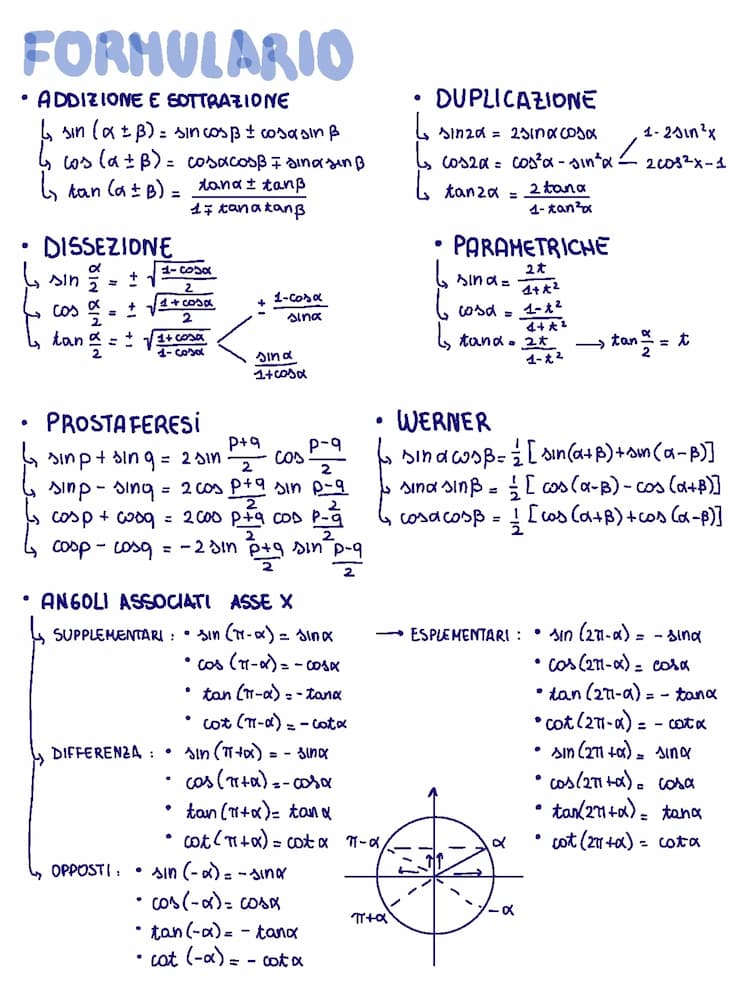 FORMULARIO
• ADDIZIONE E SOTTRAZIONE
↳ sin (α ± β) = sin cos β ± cosα sin β
↳ cos (α ± β) = cosα cosβ ∓ sinα sin β
↳ tan (α ± β) = (tanα ± tanβ)/(1 ∓ tanα tanβ)
• DUPLICAZIONE
↳ sin2α = 2sinα cosα
↳ cos2α = cos²α - sin²α
1 - 2sin²x
2cos²x - 1
↳ tan2α = (2tanα)/(1 - tan²α)
• DISSEZIONE
↳ sin α/2 = ± √((1 - cosα)/2)
↳ cos α/2 = ± √((1 + cosα)/2)
↳ tan α/2 = ± √((1 + cosα)/(1 - cosα))
± (1 - cosα)/(sinα)
(sinα)/(1 + cosα)
• PARAMETRICHE
↳ sin α = 2t/(1 + t²)
↳ cosα = (1 - t²)/(1 + t²)
↳ tanα = 2t/(1 - t²) → tan α/2 = t
• PROSTAFERESI
↳ sin p + sin q = 2 sin (p+q)/2 cos (p-q)/2
↳ sin p - sin q = 2 cos (p+q)/2 sin (p-q)/2
↳ cos p + cos q = 2 cos (p+q)/2 cos (p-q)/2
↳ cos p - cos q = -2 sin (p+q)/2 sin (p-q)/2
• WERNER
↳ sinα cosβ = 1/2 [ sin(α+β) + sin(α-β)]
↳ sinα sinβ = 1/2 [ cos(α-β) - cos(α+β)]
↳ cosα cosβ = 1/2 [cos(α+β) + cos(α-β)]
• ANGOLI ASSOCIATI ASSE X
↳ SUPPLEMENTARI : • sin (π-α) = sinα
• cos (π-α) = -cosα
• tan (π-α) = -tanα
• cot (π-α) = -cotα
↳ DIFFERENZA : • sin (π+α) = - sinα
• cos (π+α) = -cosα
• tan (π+α) = tan α
• cot (π+α) = cot α
↳ OPPOSTI : • sin (-α) = -sinα
• cos (-α) = cosα
• tan (-α) = - tanα
• cot (-α) = - cot α
→ ESPLEMENTARI : • sin (2π-α) = - sinα
• cos (2π-α) = cosα
• tan (2π-α) = - tanα
• cot (2π-α) = - cotα
• sin (2π+α) = sinα
• cos (2π+α) = cosα
• tan (2π+α) = tanα
• cot (2π+α) = cotα
π-α
α
π+α
-α